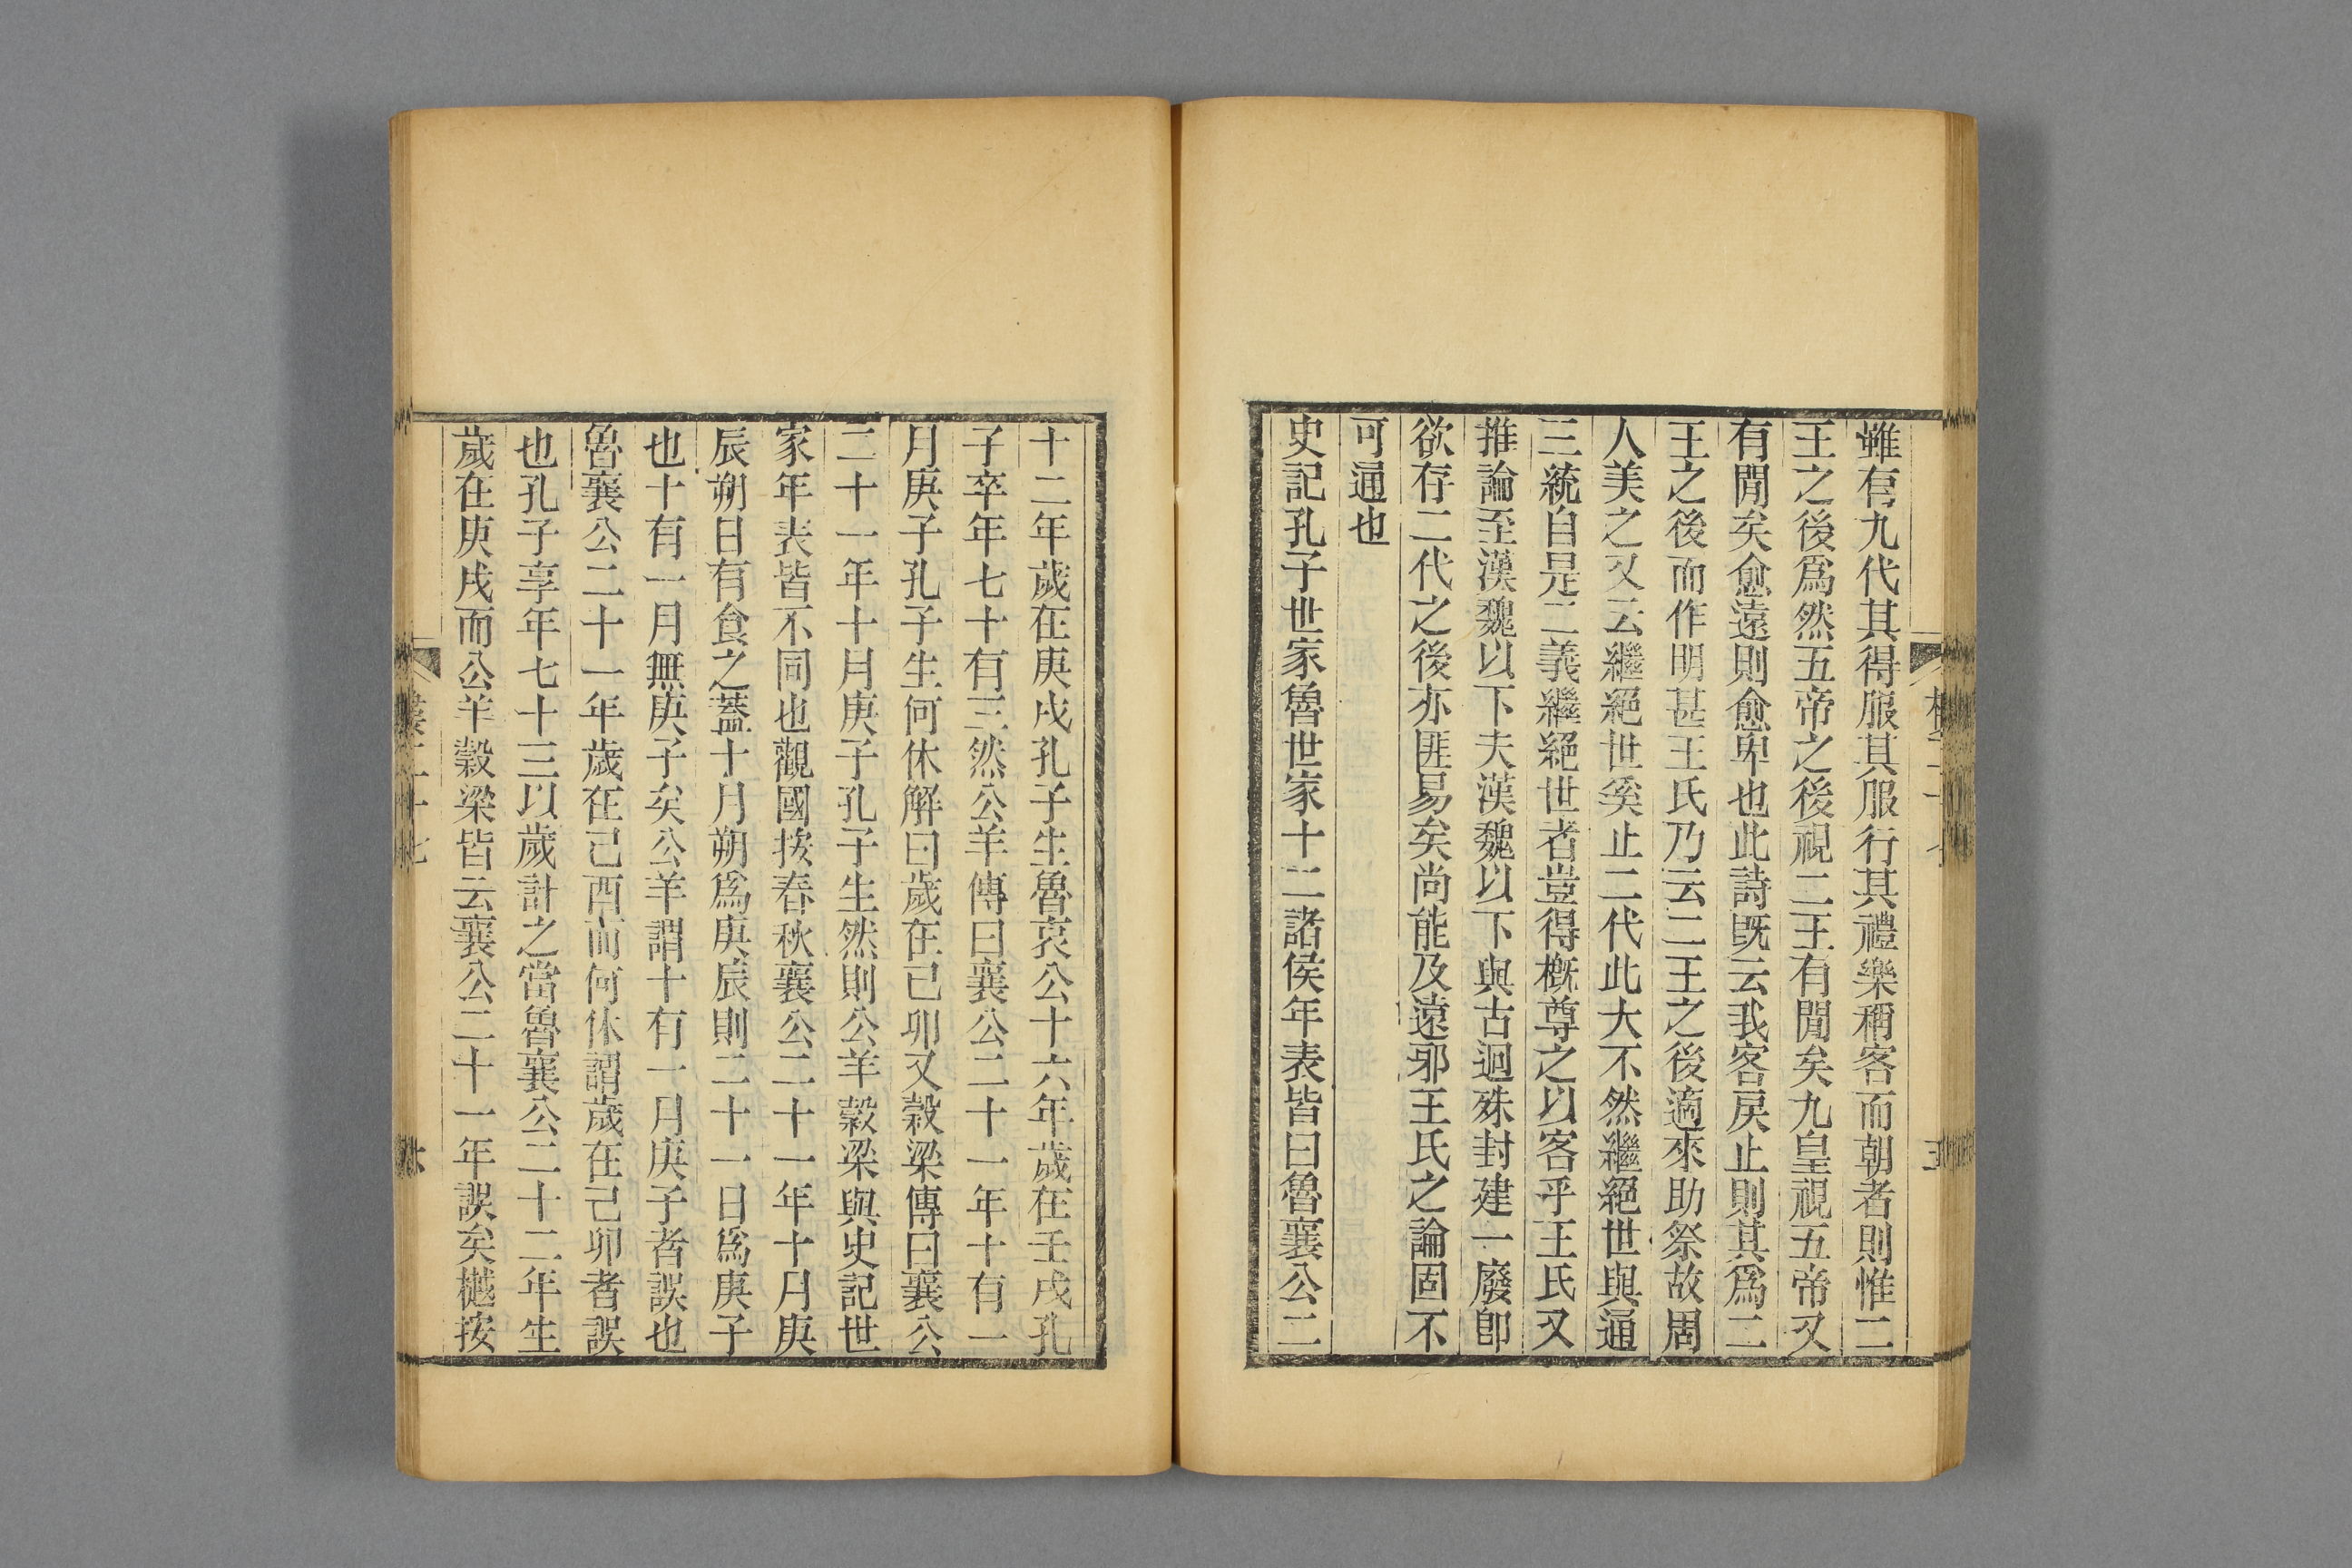 雖有九代其得服其服行其禮樂稱客而朝者則惟二
王之後爲然五帝之後視二王有閒矣九皇視五帝又
有閒矣愈遠則愈卑也此詩旣云我客戾止則其爲二
王之後而作明甚王氏乃云二王之後適來助祭故周
人美之又云繼絕世奚止二代此大不然繼絕世與通
三統自是二義繼絕世者豈得槪尊之以客乎王氏又
推論至漢魏以下夫漢魏以下與古迥殊封建一廢卽
欲存二代之後亦匪易矣尚能及遠邪王氏之論固不
可通也
史記孔子世家魯世家十二諸侯年表皆曰魯襄公二
十二年歲在庚戌孔子生魯哀公十六年歲在壬戌孔
子卒年七十有三然公羊傳曰襄公二十一年十有一
月庚子孔子生何休解曰歲在己卯又穀梁傳曰襄公
二十一年十月庚子孔子生然則公羊穀梁與史記世
家年表皆不同也觀國按春秋襄公二十一年十月庚
辰朔日有食之蓋十月朔爲庚辰則二十一日爲庚子
也十有一月無庚子矣公羊謂十有一月庚子者誤也
魯襄公二十一年歲在己酉而何休謂歲在己卯者誤
也孔子享年七十三以歲計之當魯襄公二十二年生
歲在庚戌而公羊穀梁皆云襄公二十一年誤矣樾按